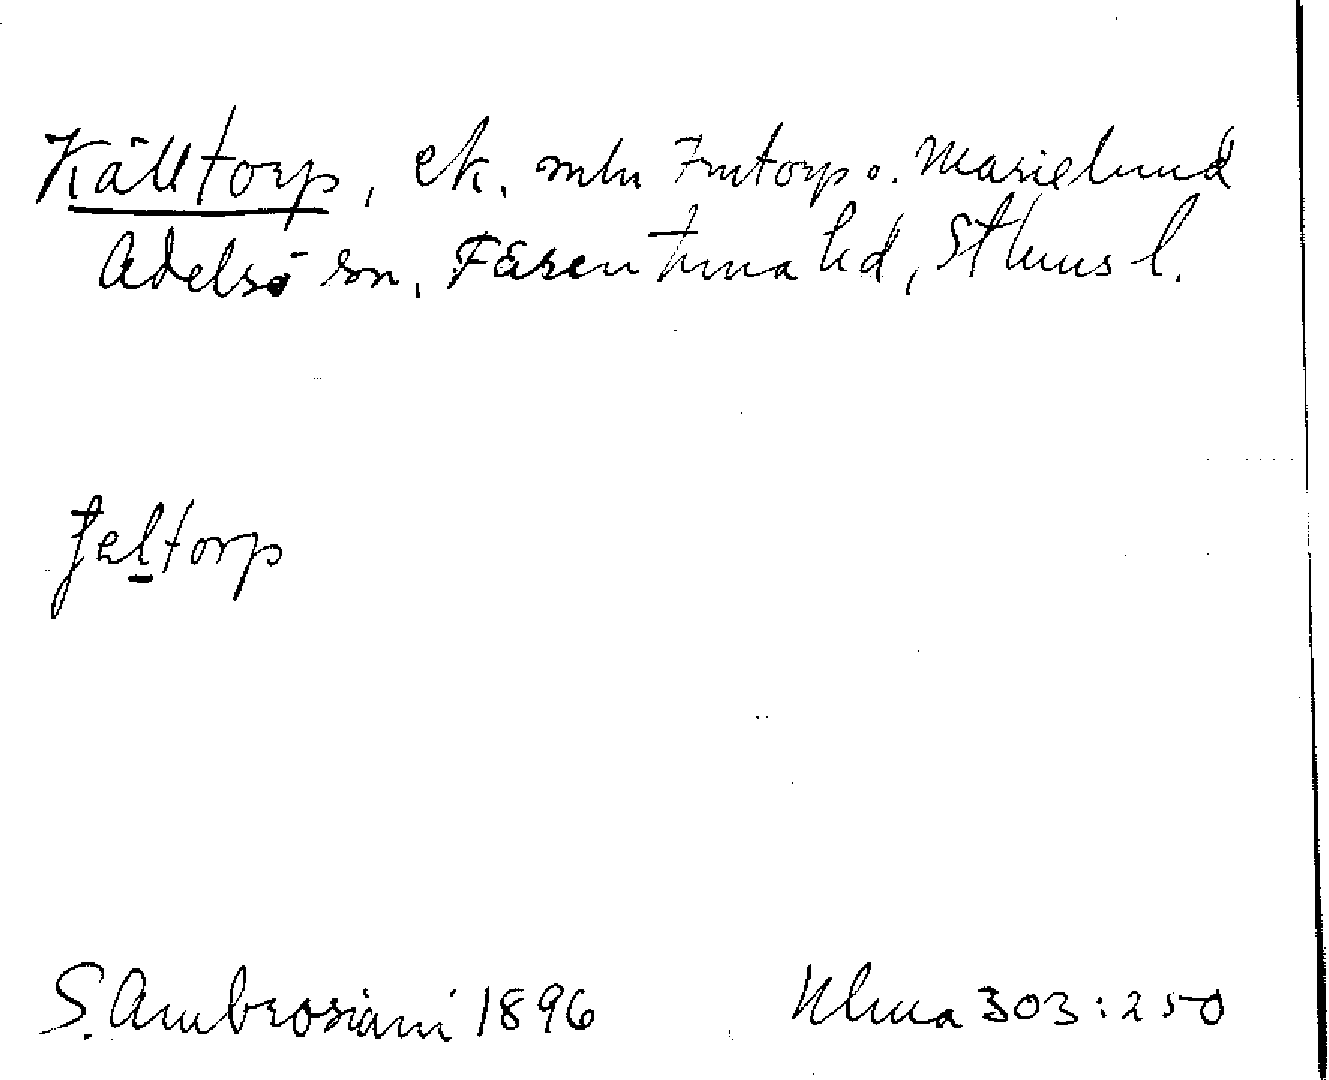 Källtorp, ek. mln Frutorp o. Marielund
Adelsö sn, Färentuna hd, Sthms l.
ʃɛltorp
S. Ambrosiani 1896 Ulma 303:250